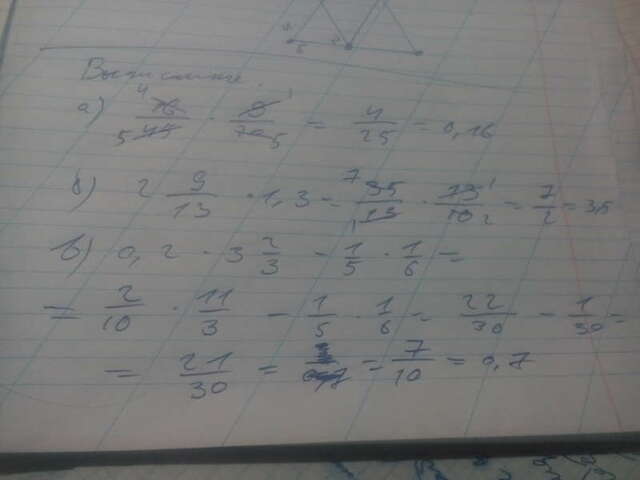 Вычисление.
а) 16/45 · 9/20 = 4/25 = 0,16
б) 2 9/13 · 1,3 = 35/13 · 13/10 = 7/2 = 3,5
в) 0,2 · 3 2/3 - 1/5 · 1/6 =
= 2/10 · 11/3 - 1/5 · 1/6 = 22/30 - 1/30 =
= 21/30 = = 7/10 = 0,7